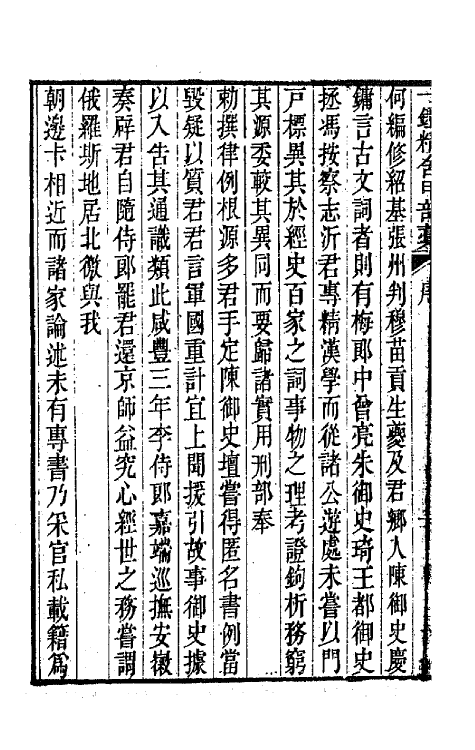 一鐙精舍甲部藁 序
何編修紹基張州判穆苗貢生夔及君鄉人陳御史慶
鏞言古文詞者則有梅郎中曾亮朱御史琦王都御史
拯馮按察志沂君專精漢學而從諸公遊處未嘗以門
戸標異其於經史百家之詞事物之理考證鉤析務窮
其源委較其異同而要歸諸實用刑部奉
勅撰律例根源多君手定陳御史壇嘗得匿名書例當
毀疑以質君君言軍國重計宜上聞援引故事御史據
以入告其通識類此咸豐三年李侍郎嘉端巡撫安徽
奏辟君自隨侍郎罷君還京師益究心經世之務嘗謂
俄羅斯地居北徼與我
朝邊卡相近而諸家論述未有專書乃采官私載籍爲